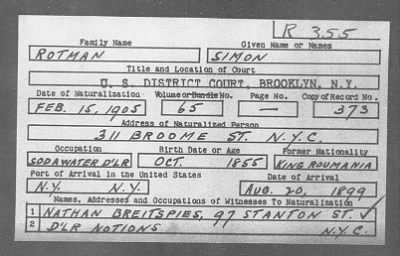 R 355
Family Name Given Name or Names
ROTMAN SIMON
Title and Location of Court
U. S. DISTRICT COURT, BROOKLYN, N.Y.
Date of Naturalization Volume or Bundle No. Page No. Copy of Record No.
FEB. 15, 1905 65 — 373
Address of Naturalized Person
311 BROOME ST. N.Y.C.
Occupation Birth Date or Age Former Nationality
SODAWATER D'L'R OCT. 1855 KING ROUMANIA
Port of Arrival in the United States Date of Arrival
N.Y. N.Y. AUG. 20, 1899
Names, Addresses and Occupations of Witnesses To Naturalization
1 NATHAN BREITSPIES, 97 STANTON ST. ✓
2 D'L'R NOTIONS N.Y.C.